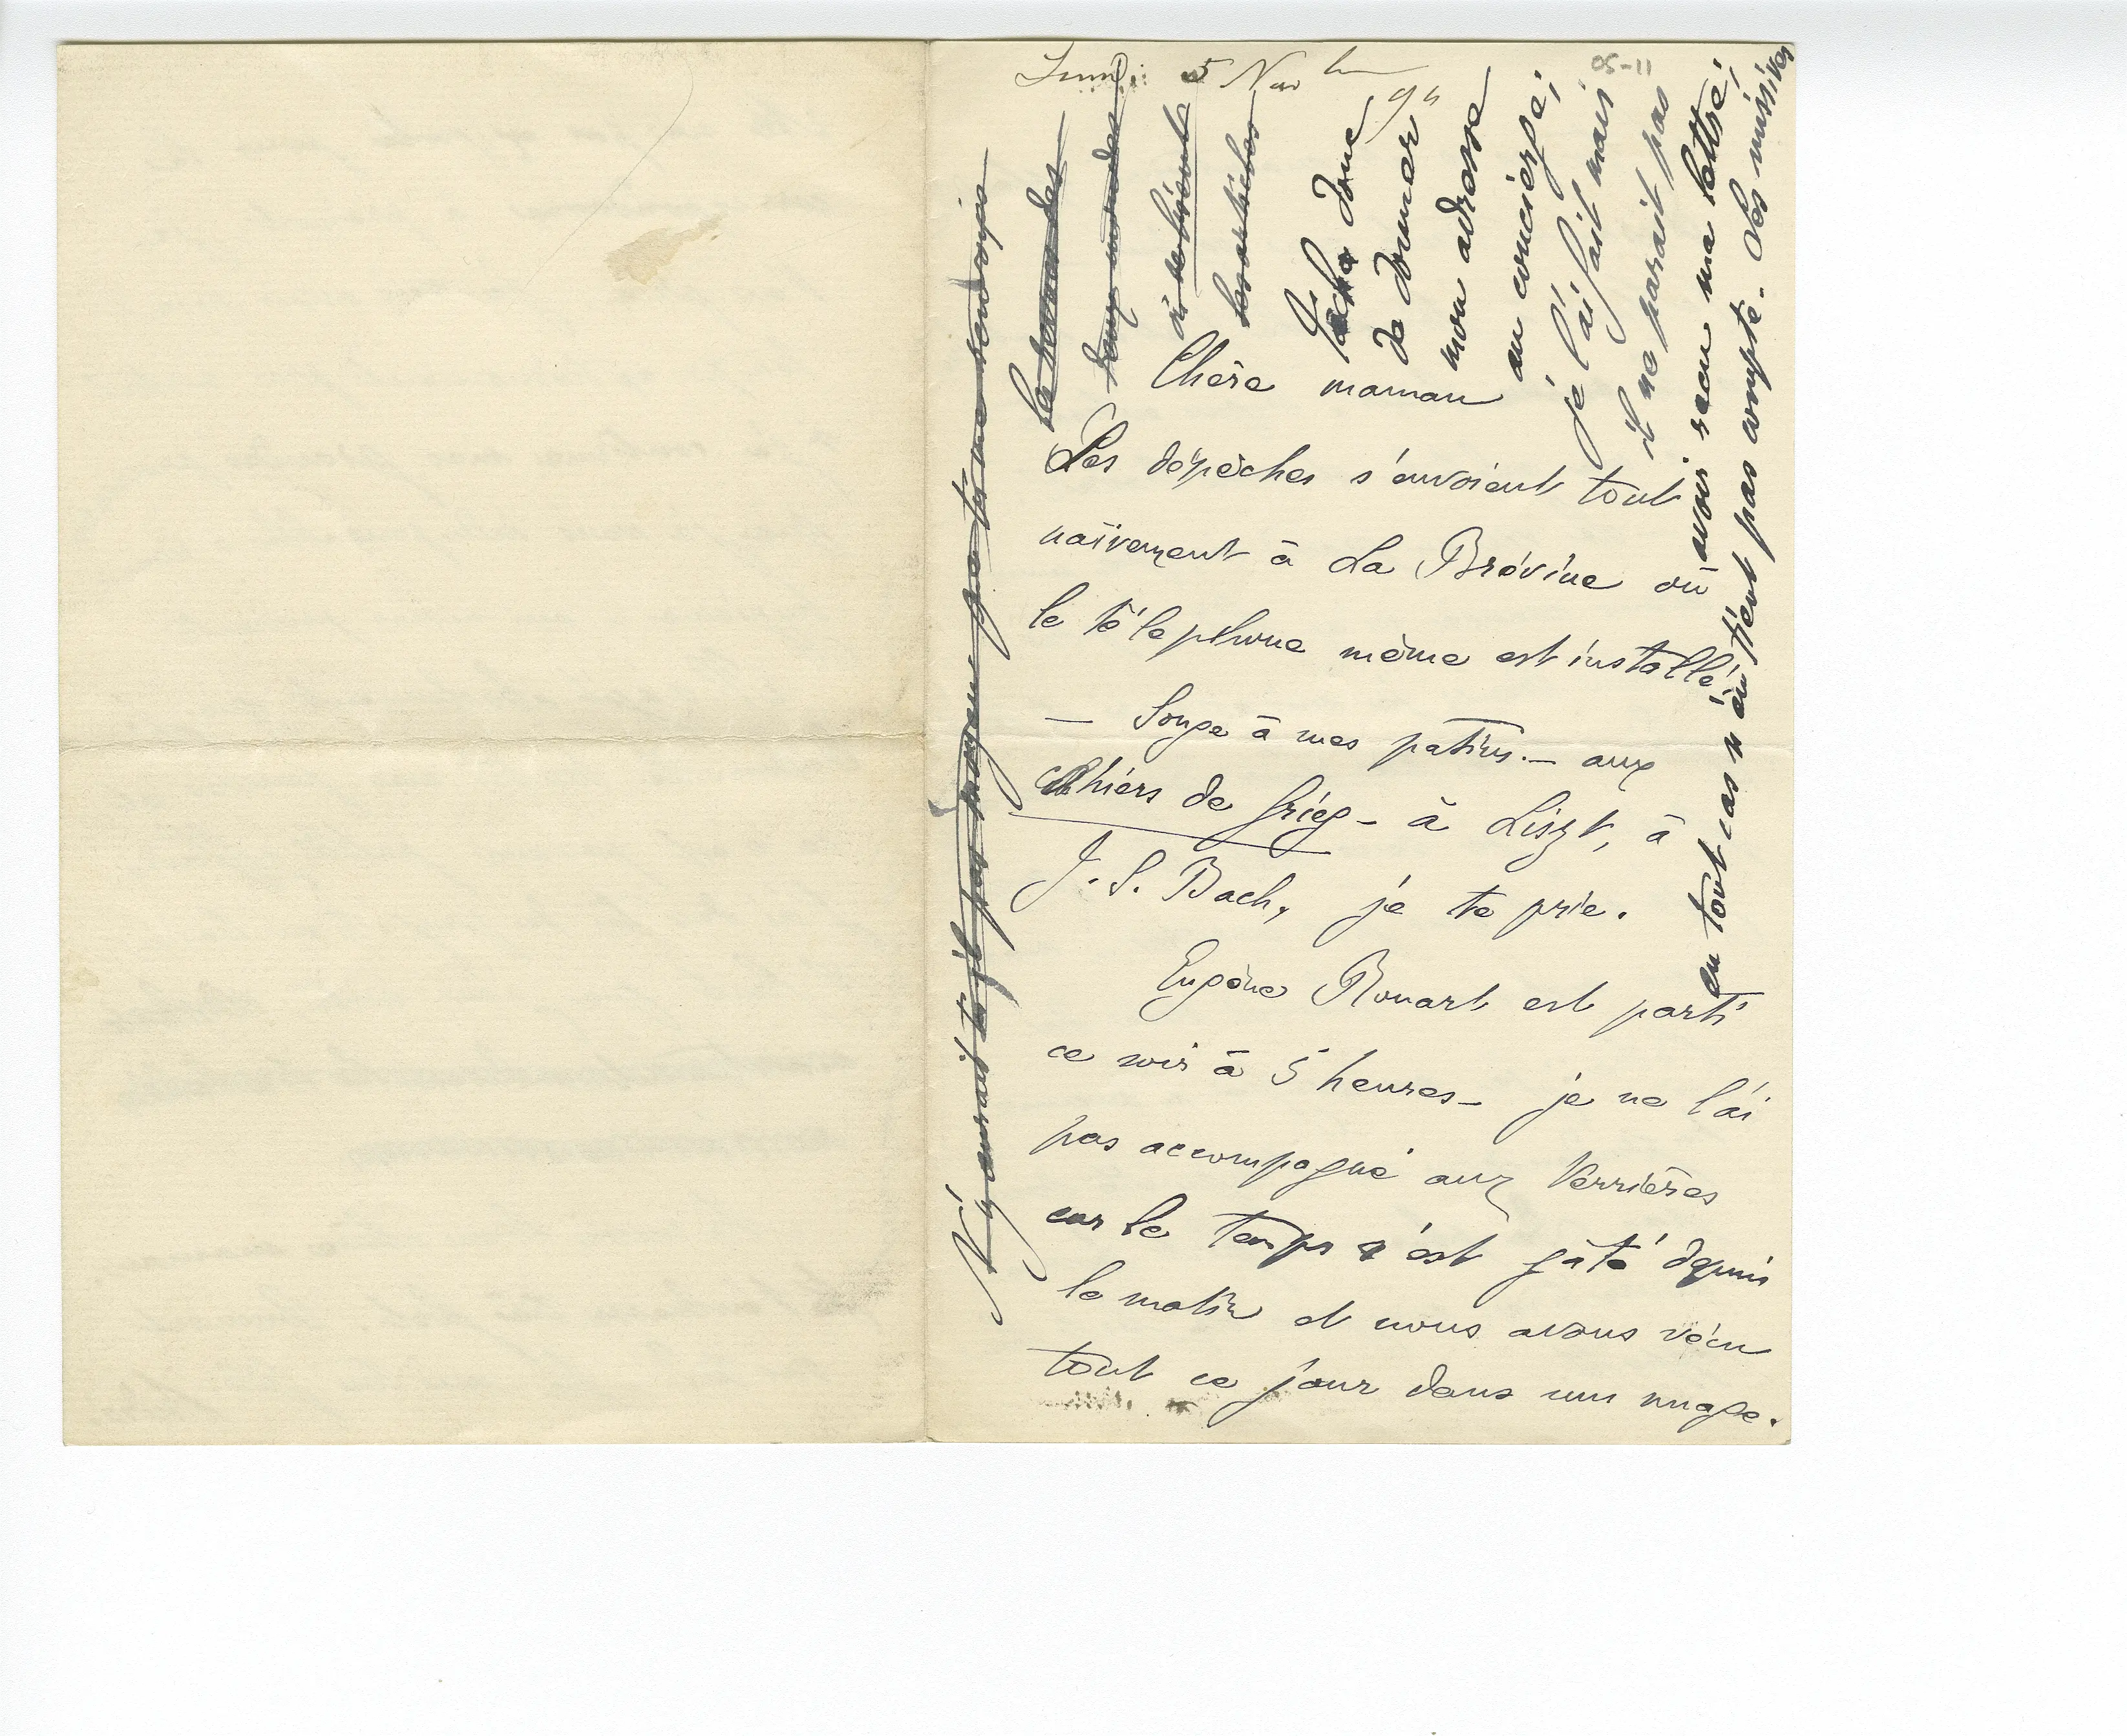 Lundi 5 Nov bre 94
05-11
Chère maman
Les dépêches s'envoient tout
naïvement à La Brévine où
le téléphone même est installé.
— Songe à mes patins. — aux
cahiers de Grieg — à Liszt, à
J. S. Bach, je te prie.
Eugène Rouart est parti
ce soir à 5 heures — je ne l'ai
pas accompagné aux Verrières
car le temps s'est gâté depuis
le matin et nous avons vécu
tout ce jour dans un nuage.
Tâche donc
de donner
mon adresse
au concierge;
je l'ai fait mais
il ne paraît pas
avoir reçu ma lettre;
en tout cas n'en tient pas compte. Les missives
N'y aurait-il pas moyen que tu me renvoies
la revue des
deux mondes
où se trouvent
les articles